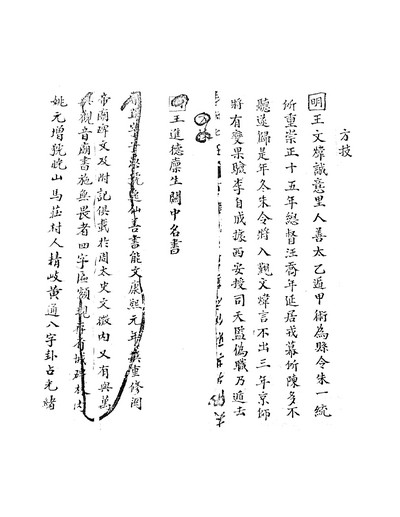 方技
明 王文煒誠意里人善太乙遁甲術為縣令朱一統
所重崇正十五年總督汪喬年延居戎幕所陳多不
聽遂歸是年冬朱令將入覲文煒言不出三年京師
將有變果驗李自成據西安授司天監偽職乃遁去
王進德廩生關中名書
仙善書能文康熙元年重修關
帝廟碑文及附記俱載於周太史文徵內又有與萬
觀音廟書施無畏者四字匾額觀
姚元增號曉山馬莊村人精岐黃通八字卦占光緒